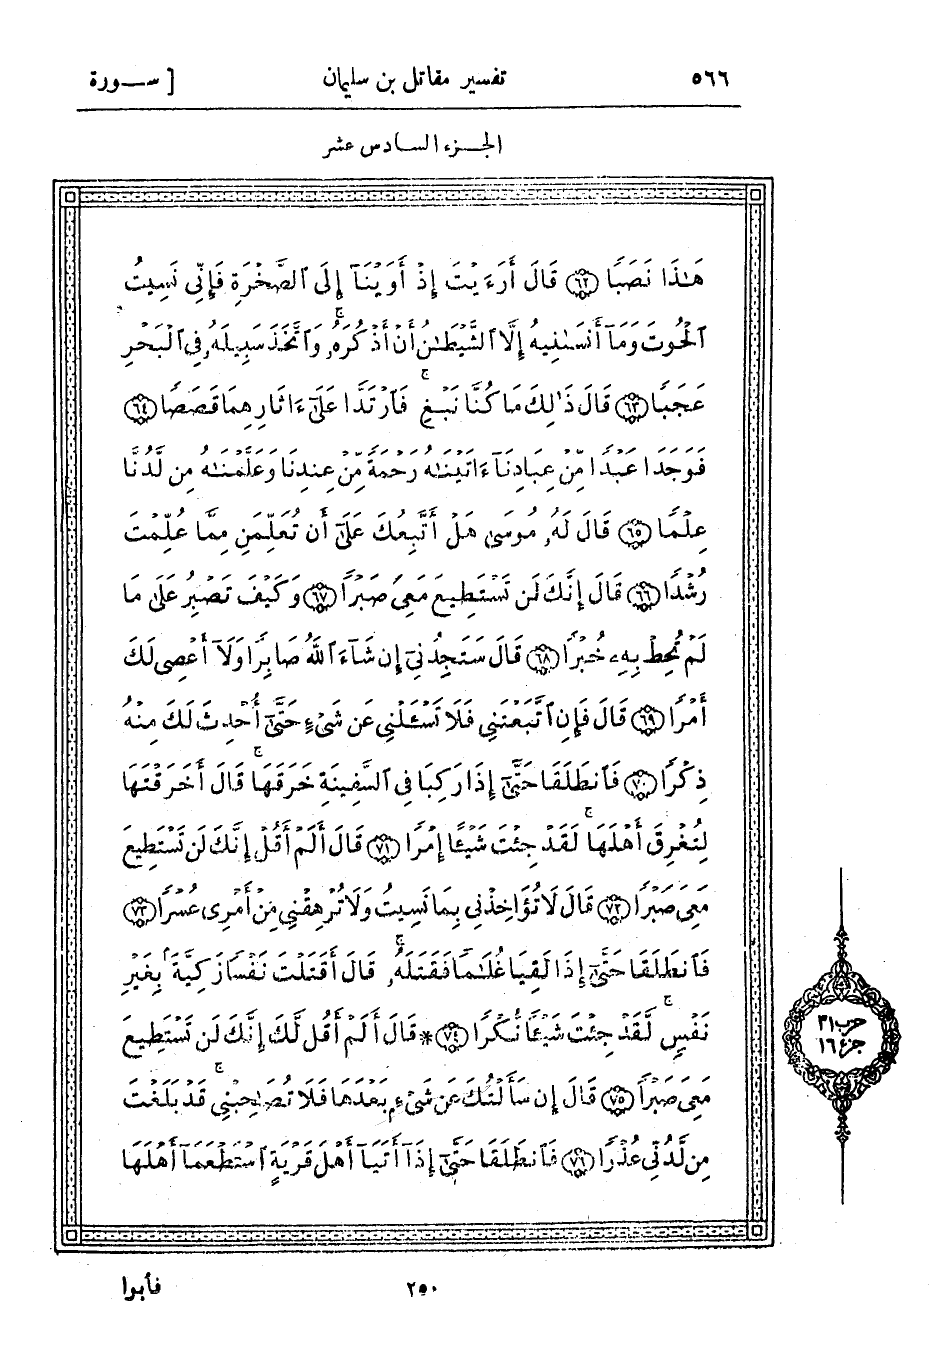 ٥٦٦ تفسير مقاتل بن سليمان [ ســورة
الجــزء الســادس عشر
هَٰذَا نَصَبًا ﴿٦٢﴾ قَالَ أَرَءَيْتَ إِذْ أَوَيْنَآ إِلَى ٱلصَّخْرَةِ فَإِنِّى نَسِيتُ
ٱلْحُوتَ وَمَآ أَنسَىٰنِيهُ إِلَّا ٱلشَّيْطَٰنُ أَنْ أَذْكُرَهُۥ ۚ وَٱتَّخَذَ سَبِيلَهُۥ فِى ٱلْبَحْرِ
عَجَبًا ﴿٦٣﴾ قَالَ ذَٰلِكَ مَا كُنَّا نَبْغِ ۚ فَٱرْتَدَّا عَلَىٰٓ ءَاثَارِهِمَا قَصَصًا ﴿٦٤﴾
فَوَجَدَا عَبْدًا مِّنْ عِبَادِنَآ ءَاتَيْنَٰهُ رَحْمَةً مِّنْ عِندِنَا وَعَلَّمْنَٰهُ مِن لَّدُنَّا
عِلْمًا ﴿٦٥﴾ قَالَ لَهُۥ مُوسَىٰ هَلْ أَتَّبِعُكَ عَلَىٰٓ أَن تُعَلِّمَنِ مِمَّا عُلِّمْتَ
رُشْدًا ﴿٦٦﴾ قَالَ إِنَّكَ لَن تَسْتَطِيعَ مَعِىَ صَبْرًا ﴿٦٧﴾ وَكَيْفَ تَصْبِرُ عَلَىٰ مَا
لَمْ تُحِطْ بِهِۦ خُبْرًا ﴿٦٨﴾ قَالَ سَتَجِدُنِىٓ إِن شَآءَ ٱللَّهُ صَابِرًا وَلَآ أَعْصِى لَكَ
أَمْرًا ﴿٦٩﴾ قَالَ فَإِنِ ٱتَّبَعْتَنِى فَلَا تَسْـَٔلْنِى عَن شَىْءٍ حَتَّىٰٓ أُحْدِثَ لَكَ مِنْهُ
ذِكْرًا ﴿٧٠﴾ فَٱنطَلَقَا حَتَّىٰٓ إِذَا رَكِبَا فِى ٱلسَّفِينَةِ خَرَقَهَا ۖ قَالَ أَخَرَقْتَهَا
لِتُغْرِقَ أَهْلَهَا ۚ لَقَدْ جِئْتَ شَيْئًا إِمْرًا ﴿٧١﴾ قَالَ أَلَمْ أَقُلْ إِنَّكَ لَن تَسْتَطِيعَ
مَعِىَ صَبْرًا ﴿٧٢﴾ قَالَ لَا تُؤَاخِذْنِى بِمَا نَسِيتُ وَلَا تُرْهِقْنِى مِنْ أَمْرِى عُسْرًا ﴿٧٣﴾
فَٱنطَلَقَا حَتَّىٰٓ إِذَا لَقِيَا غُلَٰمًا فَقَتَلَهُۥ ۚ قَالَ أَقَتَلْتَ نَفْسًا زَكِيَّةًۢ بِغَيْرِ
نَفْسٍ ۚ لَّقَدْ جِئْتَ شَيْـًٔا نُّكْرًا ﴿٧٤﴾ * قَالَ أَلَمْ أَقُل لَّكَ إِنَّكَ لَن تَسْتَطِيعَ
مَعِىَ صَبْرًا ﴿٧٥﴾ قَالَ إِن سَأَلْتُكَ عَن شَىْءٍۭ بَعْدَهَا فَلَا تُصَٰحِبْنِى ۚ قَدْ بَلَغْتَ
مِن لَّدُنِّى عُذْرًا ﴿٧٦﴾ فَٱنطَلَقَا حَتَّىٰٓ إِذَآ أَتَيَآ أَهْلَ قَرْيَةٍ ٱسْتَطْعَمَآ أَهْلَهَا
حزب ٣١
جزء ١٦
٢٥٠ فأبوا